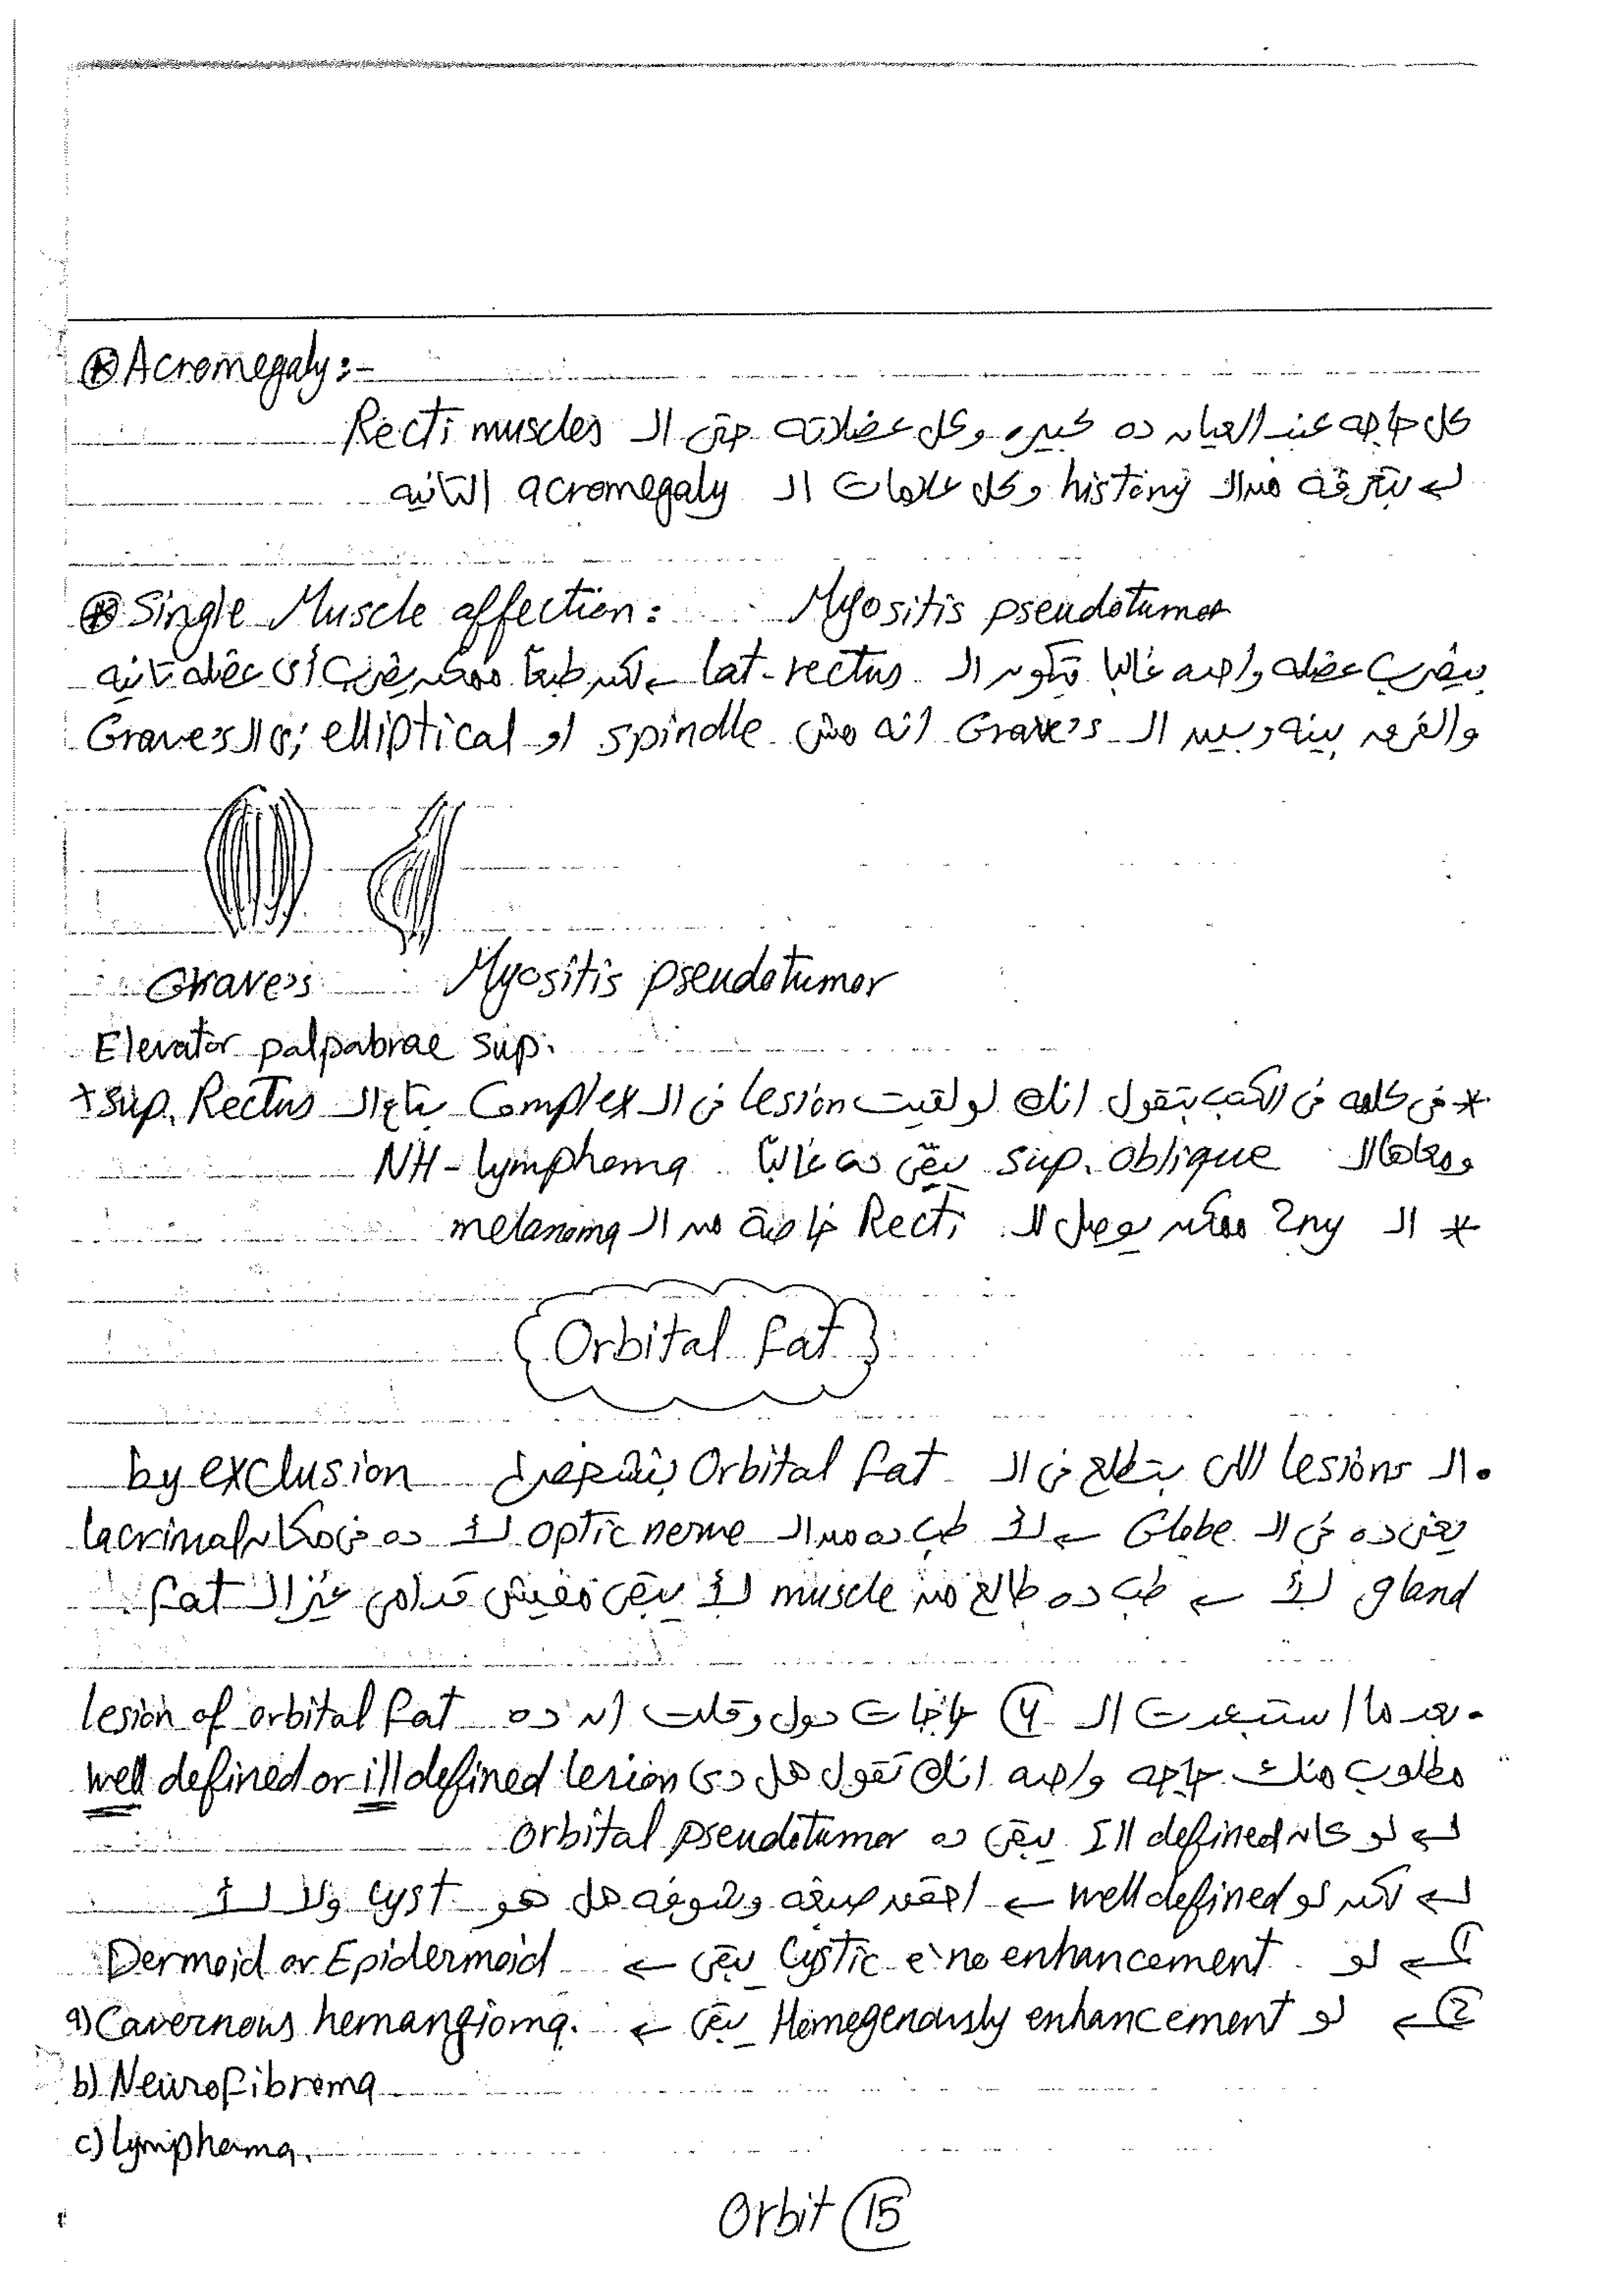 * Acromegaly:-
كل حاجه عند العيان ده كبيره وكل عضلاته حتى الـ Recti muscles
بتعرفه من الـ history وكل علامات الـ acromegaly التانيه
* Single Muscle affection: Myositis pseudotumor
بيضرب عضله واحده غالبا بتكون الـ lat. rectus ← لكن طبعاً ممكن يضرب أى عضله تانيه
والفرق بينه وبين الـ Grave's انه مش spindle او elliptical زى الـ Grave's
Grave's Myositis pseudotumor
Elevator palpabrae sup.
* فى كلمه فى الكتب بتقول انك لو لقيت lesion فى الـ Complex بتاع الـ sup. Rectus +
ومعاها الـ sup. oblique يبقى ده غالباً NH-lymphoma
* الـ 2ny ممكن يوصل للـ Recti خاصة من الـ melanoma
Orbital fat
• الـ lesions اللى بتطلع فى الـ Orbital fat بتشخص by exclusion
يعنى ده فى الـ Globe ← لأ طب ده من الـ optic nerve لأ ده فى مكان lacrimal
gland لأ ← طب ده طالع من muscle لأ يبقى مفيش قدامى غير الـ fat.
• بعد ما استبعدت الـ 4 حاجات دول وقلت ان ده lesion of orbital fat
مطلوب منك حاجه واحده انك تقول هل دى well defined or ill defined lesion
لو كان Ill defined يبقى ده orbital pseudotumor
لكن لو well defined ← احقن صبغه وشوفه هل هو cyst ولا لأ
① لو Cystic c̄ no enhancement يبقى ← Dermoid or Epidermoid
② لو Homogenously enhancement يبقى ← a) Cavernous hemangioma.
b) Neurofibroma
c) lymphoma.
Orbit 15